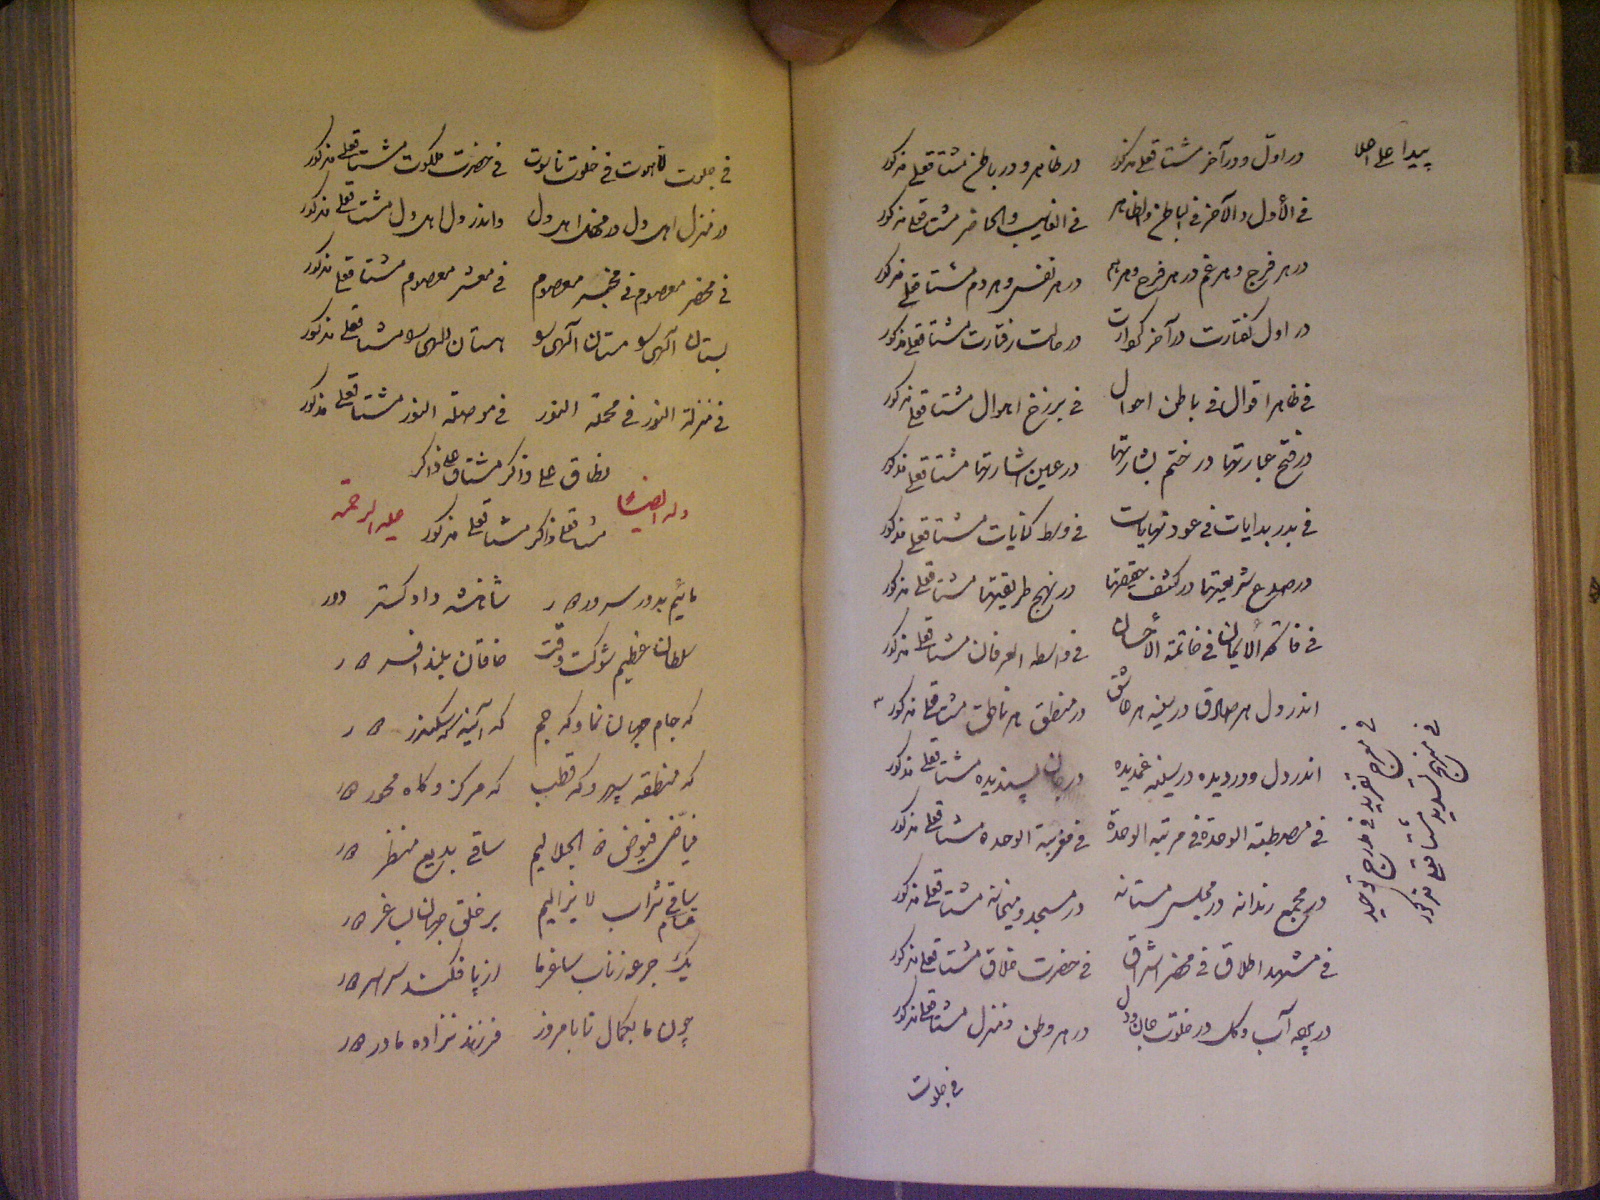 پیدا علی اصلا
در اول و در آخر مشتاقعلی مذکور در ظاهر و در باطن مشتاقعلی مذکور
فی الأول و الآخر فی الباطن و الظاهر فی الغایب و الحاضر مشتاقعلی مذکور
در هر فرج و هر غم در هر فرح و هر هم در هر نفس و هر دم مشتاقعلی مذکور
در اول گفتارت در آخر کردارت در حالت رفتارت مشتاقعلی مذکور
فی ظاهر اقوال فی باطن احوال فی برزخ اهوال مشتاقعلی مذکور
در فتح عبارتها در ختم بشارتها در عین اشارتها مشتاقعلی مذکور
فی بدر بدایات فی عود نهایات فی وسط کنایات مشتاقعلی مذکور
در شریعتها در کشف حقیقتها در نهج طریقتها مشتاقعلی مذکور
فی فاتحه الایمان فی خاتمة الأحسان فی واسطه العرفان مشتاقعلی مذکور
اندر دل هر صادق در سینه هر عاشق در منطق هر ناطق مشتاقعلی مذکور
اندر دل و در دیده در سینه غمدیده در جان پسندیده مشتاقعلی مذکور
فی مصطبة الوحدة فی مرتبة الوحدة فی مشتاقعلی مذکور
در مجمع رندانه در مجلس مستانه در مسجد و میخانه مشتاقعلی مذکور
فی مشهد اطلاق فی محضر اشراق فی حضرت خلاق مشتاقعلی مذکور
در آب و گل در خلوت جان و دل در هر وطن و منزل مشتاقعلی مذکور
فی جلوت
فی معراج تفرید فی مدرج توحید
فی منهج مشتاقعلی مذکور
فی جلوت لاهوت فی خلوت ناسوت فی حضرت ملکوت مشتاقعلی مذکور
در منزل اهل دل در محفل اهل دل و اندر دل اهل دل مشتاقعلی مذکور
فی محضر معصوم فی مخبر معصوم فی معشر معصوم مشتاقعلی مذکور
مشتاقعلی مذکور
فی منزلة النور فی محلة النور فی موصلة النور مشتاقعلی مذکور
علی ذاکر مشتاق علی ذاکر
وله ایضا مشتاقعلی ذاکر مشتاقعلی مذکور علیه الرحمة
مائیم بدور سرور شاهنشه دادگستر دور
سلطان عظیم شوکت وقت خاقان بلند افسر
که جام جهان نما و که جم که آینه که سکندر
که منطقه سپهر و که قطب که مرکز و گاه محور
فیاض فیوض الجلالیم ساقی بدیع منظر
ساقی شراب لایزالیم بر خلق جهان
یک جرعه ز ناب ساغر ما از پا فکند سراسر
چون ما بکمال تا بامروز فرزند نزاده مادر